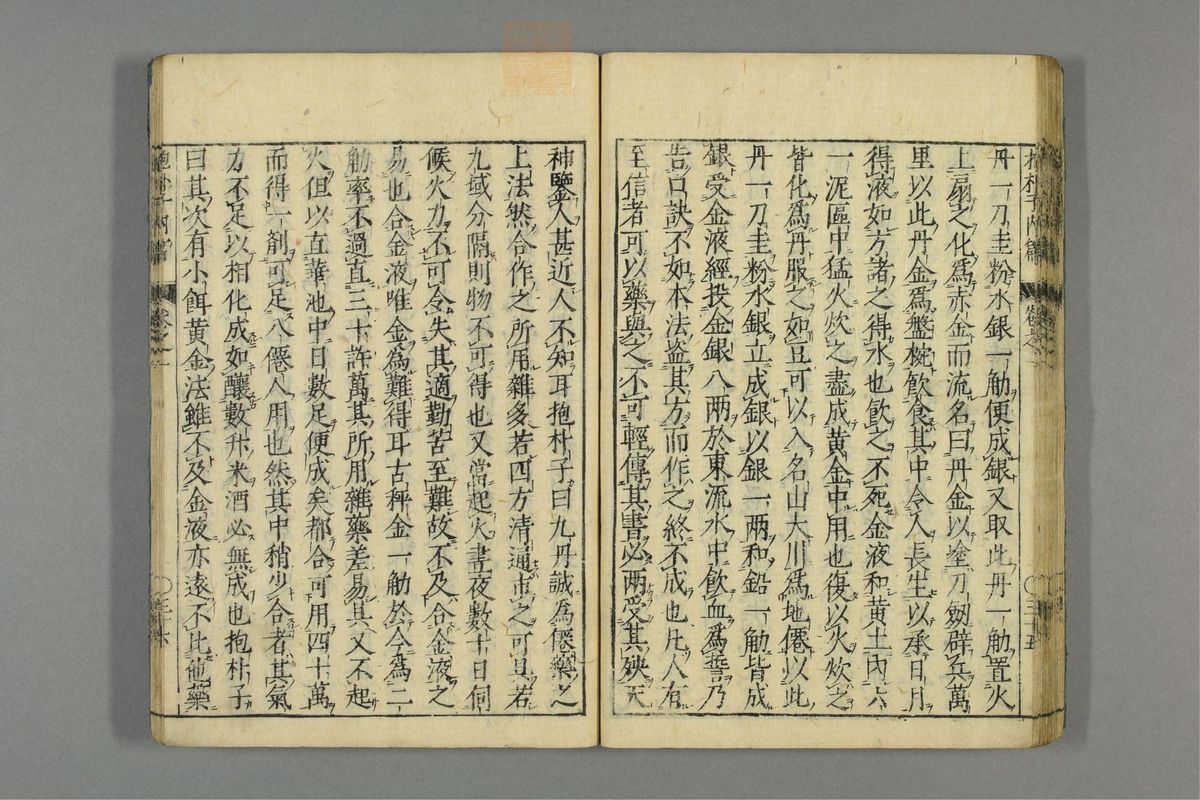 抱朴子內篇 卷之一 三十五
丹一刀圭粉水銀一觔便成銀又取此丹一觔置火
上扇之化爲赤金而流名曰丹金以塗刀劔辟兵萬
里以此丹金爲盤椀飲食其中令人長生以承日月
得液如方諸之得水也飲之不死金液和黄土內六
一泥區中猛火炊之盡成黄金中用也復以火炊之
皆化爲丹服之如豆可以入名山大川爲地僊以此
丹一刀圭粉水銀立成銀以銀一兩和鉛一觔皆成
銀受金液經投金銀八兩於東流水中飲血爲誓乃
告口訣不如本法盗其方而作之終不成也凡人有
至信者可以藥與之不可輕傳其書必兩受其殃天
神鑒人甚近人不知耳抱朴子曰九丹誠爲僊藥之
上法然合作之所用雜多若四方清通市之可具若
九域分隔則物不可得也又當起火晝夜數十日伺
候火力不可令失其適勤苦至難故不及合金液之
易也合金液唯金爲難得耳古秤金一觔於今爲二
觔率不過直三十許萬其所用雜藥差易具又不起
火但以直華池中日數足便成矣都合可用四十萬
而得一劑可足八僊人用也然其中稍少合者其氣
力不足以相化成如釀數升米酒必無成也抱朴子
曰其次有小餌黄金法雖不及金液亦遠不比他藥
抱朴子內篇 卷之一 三十六